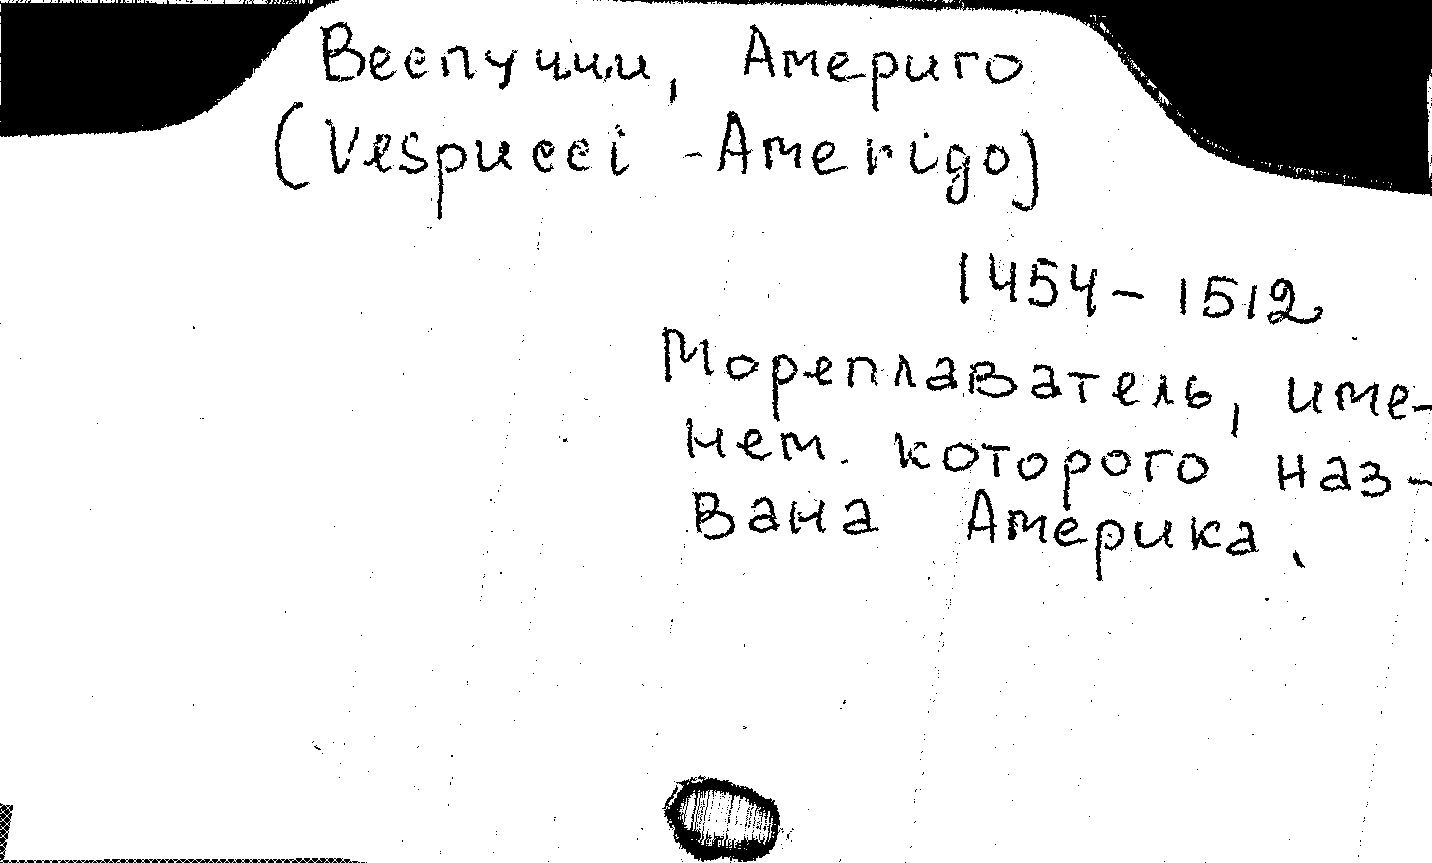 Веспуччи, Америго
(Vespucci - Amerigo)
1454 - 1512
Мореплаватель, име-
нем которого наз-
вана Америка.